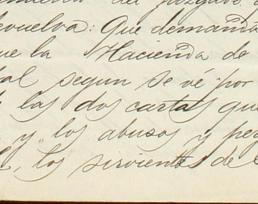 del juzgado
evuelva: Que demand
ue la Hacienda de
al segun se vé por
las dos cartas que
y los abusos y per
los sirvientes de